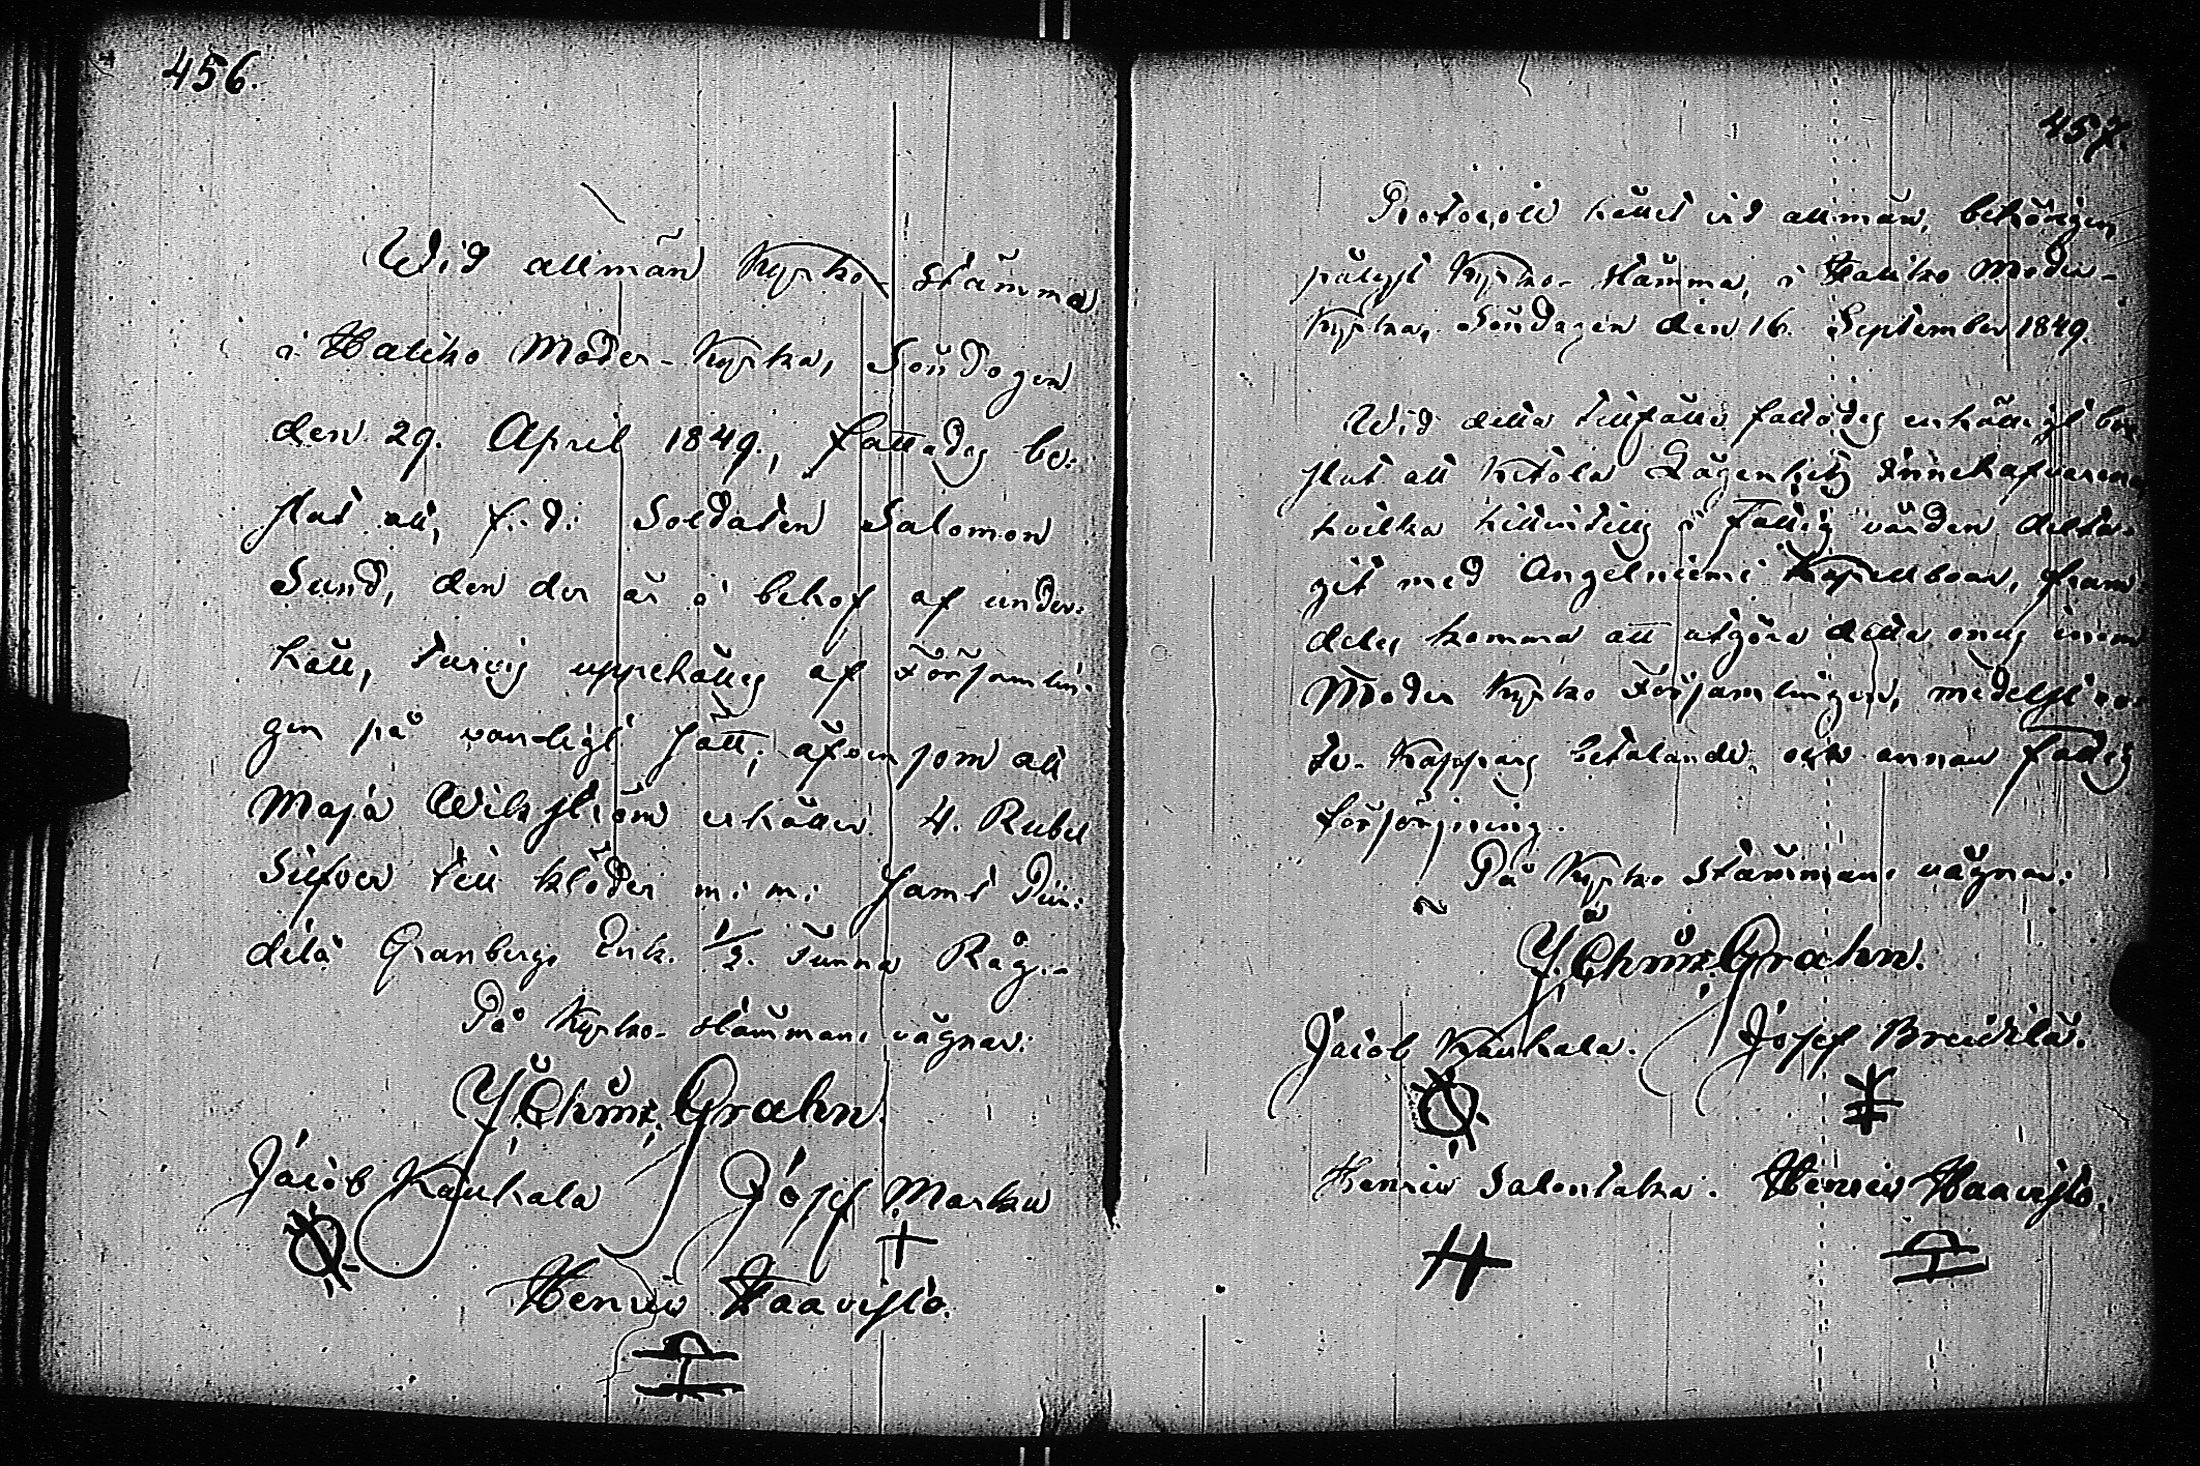 456.
Wid allmän Kyrko-stämma
i Haliko Moder-Kyrka, Söndagen
den 29. April 1849., fattades be-
slut att, f. d. Soldaten Salomon
Sund, den der är i behof af under-
håll, turvis uppehålles af Församlin-
gen på vanligt sätt; äfvensom att
Maja Wikström erhåller 4. Rubel
Silfver till kläder m. m. samt
Granbergs Enk. 1/2. Tunna Råg.
På Kyrko-stämmans vägnar:
J. Chriz. Grahn.
Jacob Kaukala Josef Marku
Henric Haavisto.
457.
Protocoll hållet vid allmän, behörigen
pålyst Kyrko-stämma, i Haliko Moder-
Kyrka, Söndagen den 16. September 1849.
Wid detta tillfälle fattades enhälligt be-
slut att Ketola Lägenhets Innehafvarena
hvilka hittills i Fattig vården delta-
git med Angelniemi Kapellboar, fram-
deles komma att utgöra detta onus inom
Moder Kyrko Församlingen, medelst
Kappars betalande, och annan Fattig
försörjning.
På Kyrko Stämmans vägnar:
J. Chriz. Grahn.
Jacob Kaukala. Josef Breidilä.
Henric Salontaka. Henric Haavisto.